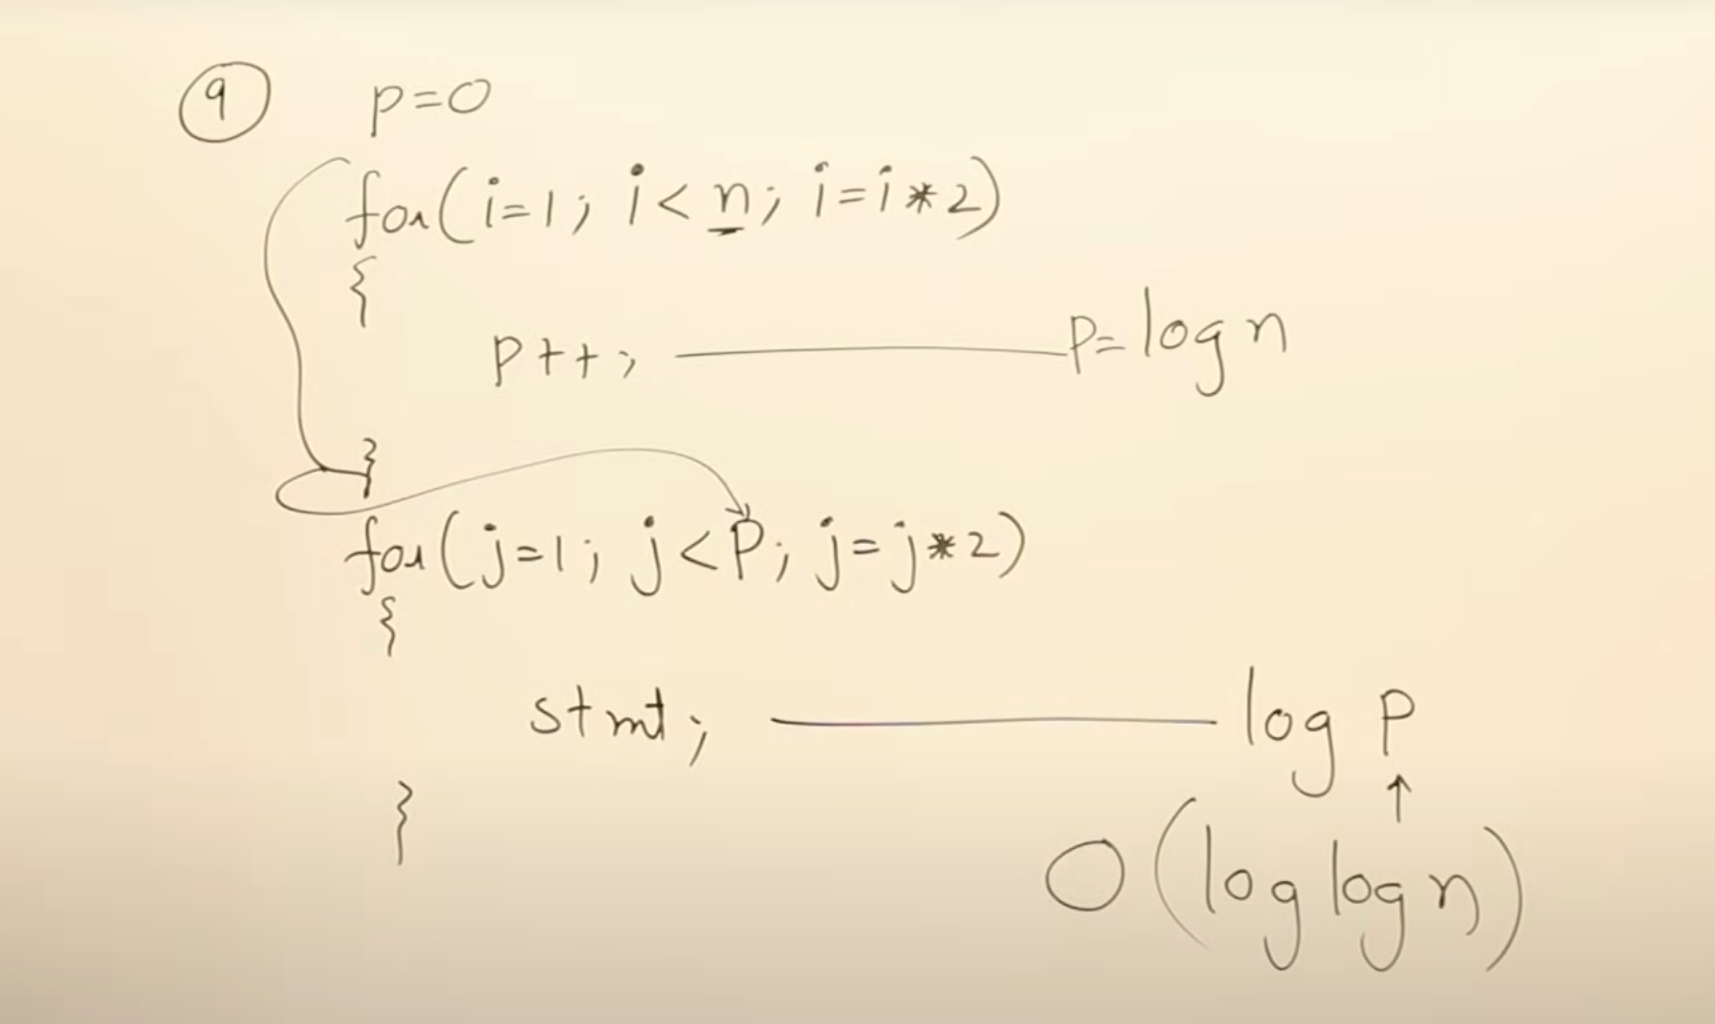 9 p=0
for(i=1; i<n; i=i*2)
{
p++; P=log n
}
for(j=1; j<P; j=j*2)
{
stmt; log P
↑
}
O(log log n)